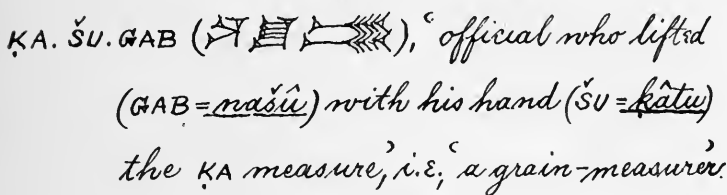 ḲA. ŠU. GAB (𒋡 𒋗 𒃮), ‘official who lifted
(GAB = našû) with his hand (ŠU = ḳâtu)
the ḲA measure,’ i.e., ‘a grain-measurer.’